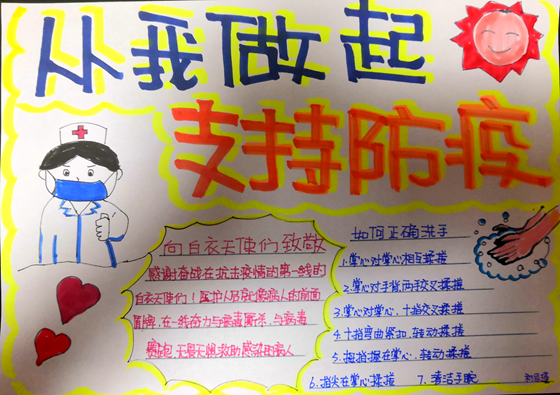 从我做起
支持防疫
向白衣天使们致敬
感谢奋战在抗击疫情的第一线的
白衣天使们！医护人员就像病人的前面
盾牌，在一线奋力与病毒厮杀，与病毒
赛跑，无畏无惧救助感染的病人
如何正确洗手
1.掌心对掌心相互揉搓
2.掌心对手背，两手交叉揉搓
3.掌心对掌心，十指交叉揉搓
4.十指弯曲紧扣，转动揉搓
5.拇指握在掌心，转动揉搓
6.指尖在掌心揉搓 7.清洁手腕